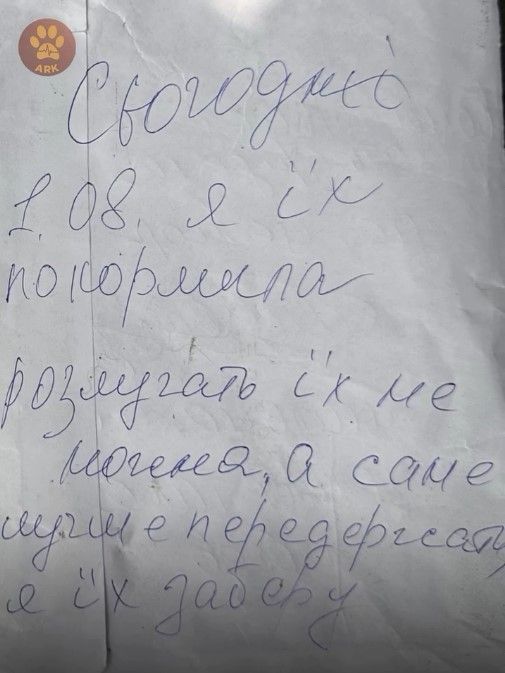 ARK
Сьогодні
1.08. я їх
покормила
розлучать їх не
можна, а саме
лучше передержать,
я їх заберу